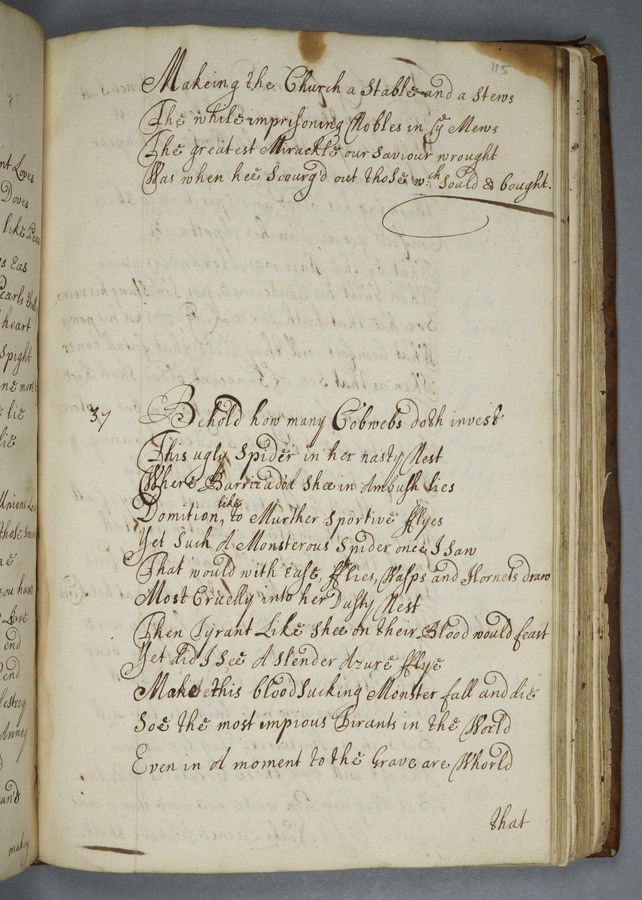 115
Makeing the Church a Stable and a Stews
The while imprisoning Nobles in ye Mews
The greatest Mirackle our Saviour wrought
Was when hee Scourg'd out those wch Sould & bought.
37
Behold how many Cobwebs doth invest
This ugly Spider in her nasty Nest
Where Barricadod Shee in Ambush lies
Domition, like to Murther Sportive fflyes
Yet Such A Monsterous Spider once I saw
That would with ease, fflies, Wasps and Hornets draw
Most Cruelly into her Dusty Nest
Then Tyrant Like Shee on their Blood would feast
Yet did I See A slender Azure fflye
Make this bloodsucking Monster fall and die
Soe the most impious Tirants in the World
Even in A moment to the Grave are Whorld
that
nt Loves
Doves
heart
Spight
lie
lie
you have
Love
end
end